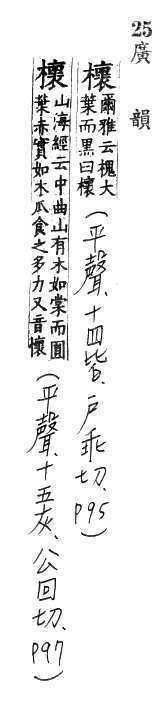 25廣韻
櫰 爾雅云槐大葉而黑曰櫰(平聲、十四皆、戶乖切、P95)
櫰 山海經云中曲山有木如棠而圓葉赤實如木瓜食之多力又音懷(平聲、十五灰、公回切、P97)